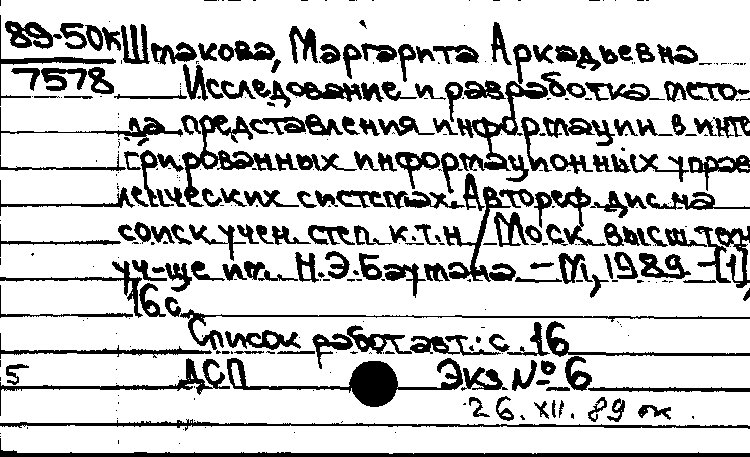 89-50к Штакова, Маргарита Аркадьевна
7578 Исследование и разработка мето-
да представления информации в инте
грированных информационных управ
ленческих системах. Автореф. дис. на
соиск. учен. степ. к.т.н / Моск. высш. техн
уч-ще им. Н.Э.Баумана – М, 1989 – [1],
16 с.
Список работ авт.: с. 16
5 ДСП Экз № 6
26. XII. 89 ок.